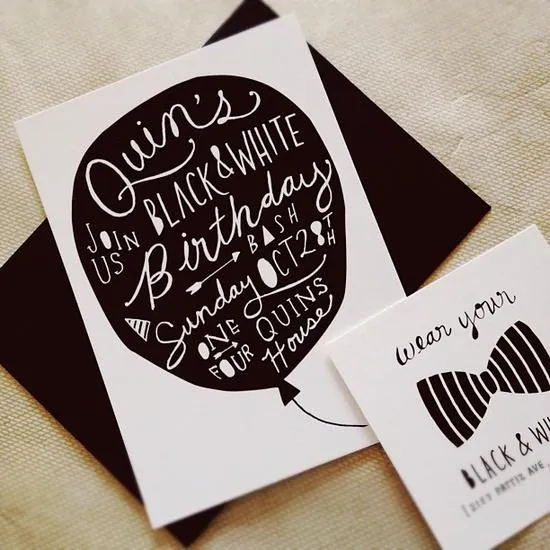 Quin's
BLACK & WHITE
JOIN US
Birthday
BASH
Sunday OCT 28TH
ONE FOUR
QUINS
House
wear your
BLACK & WH